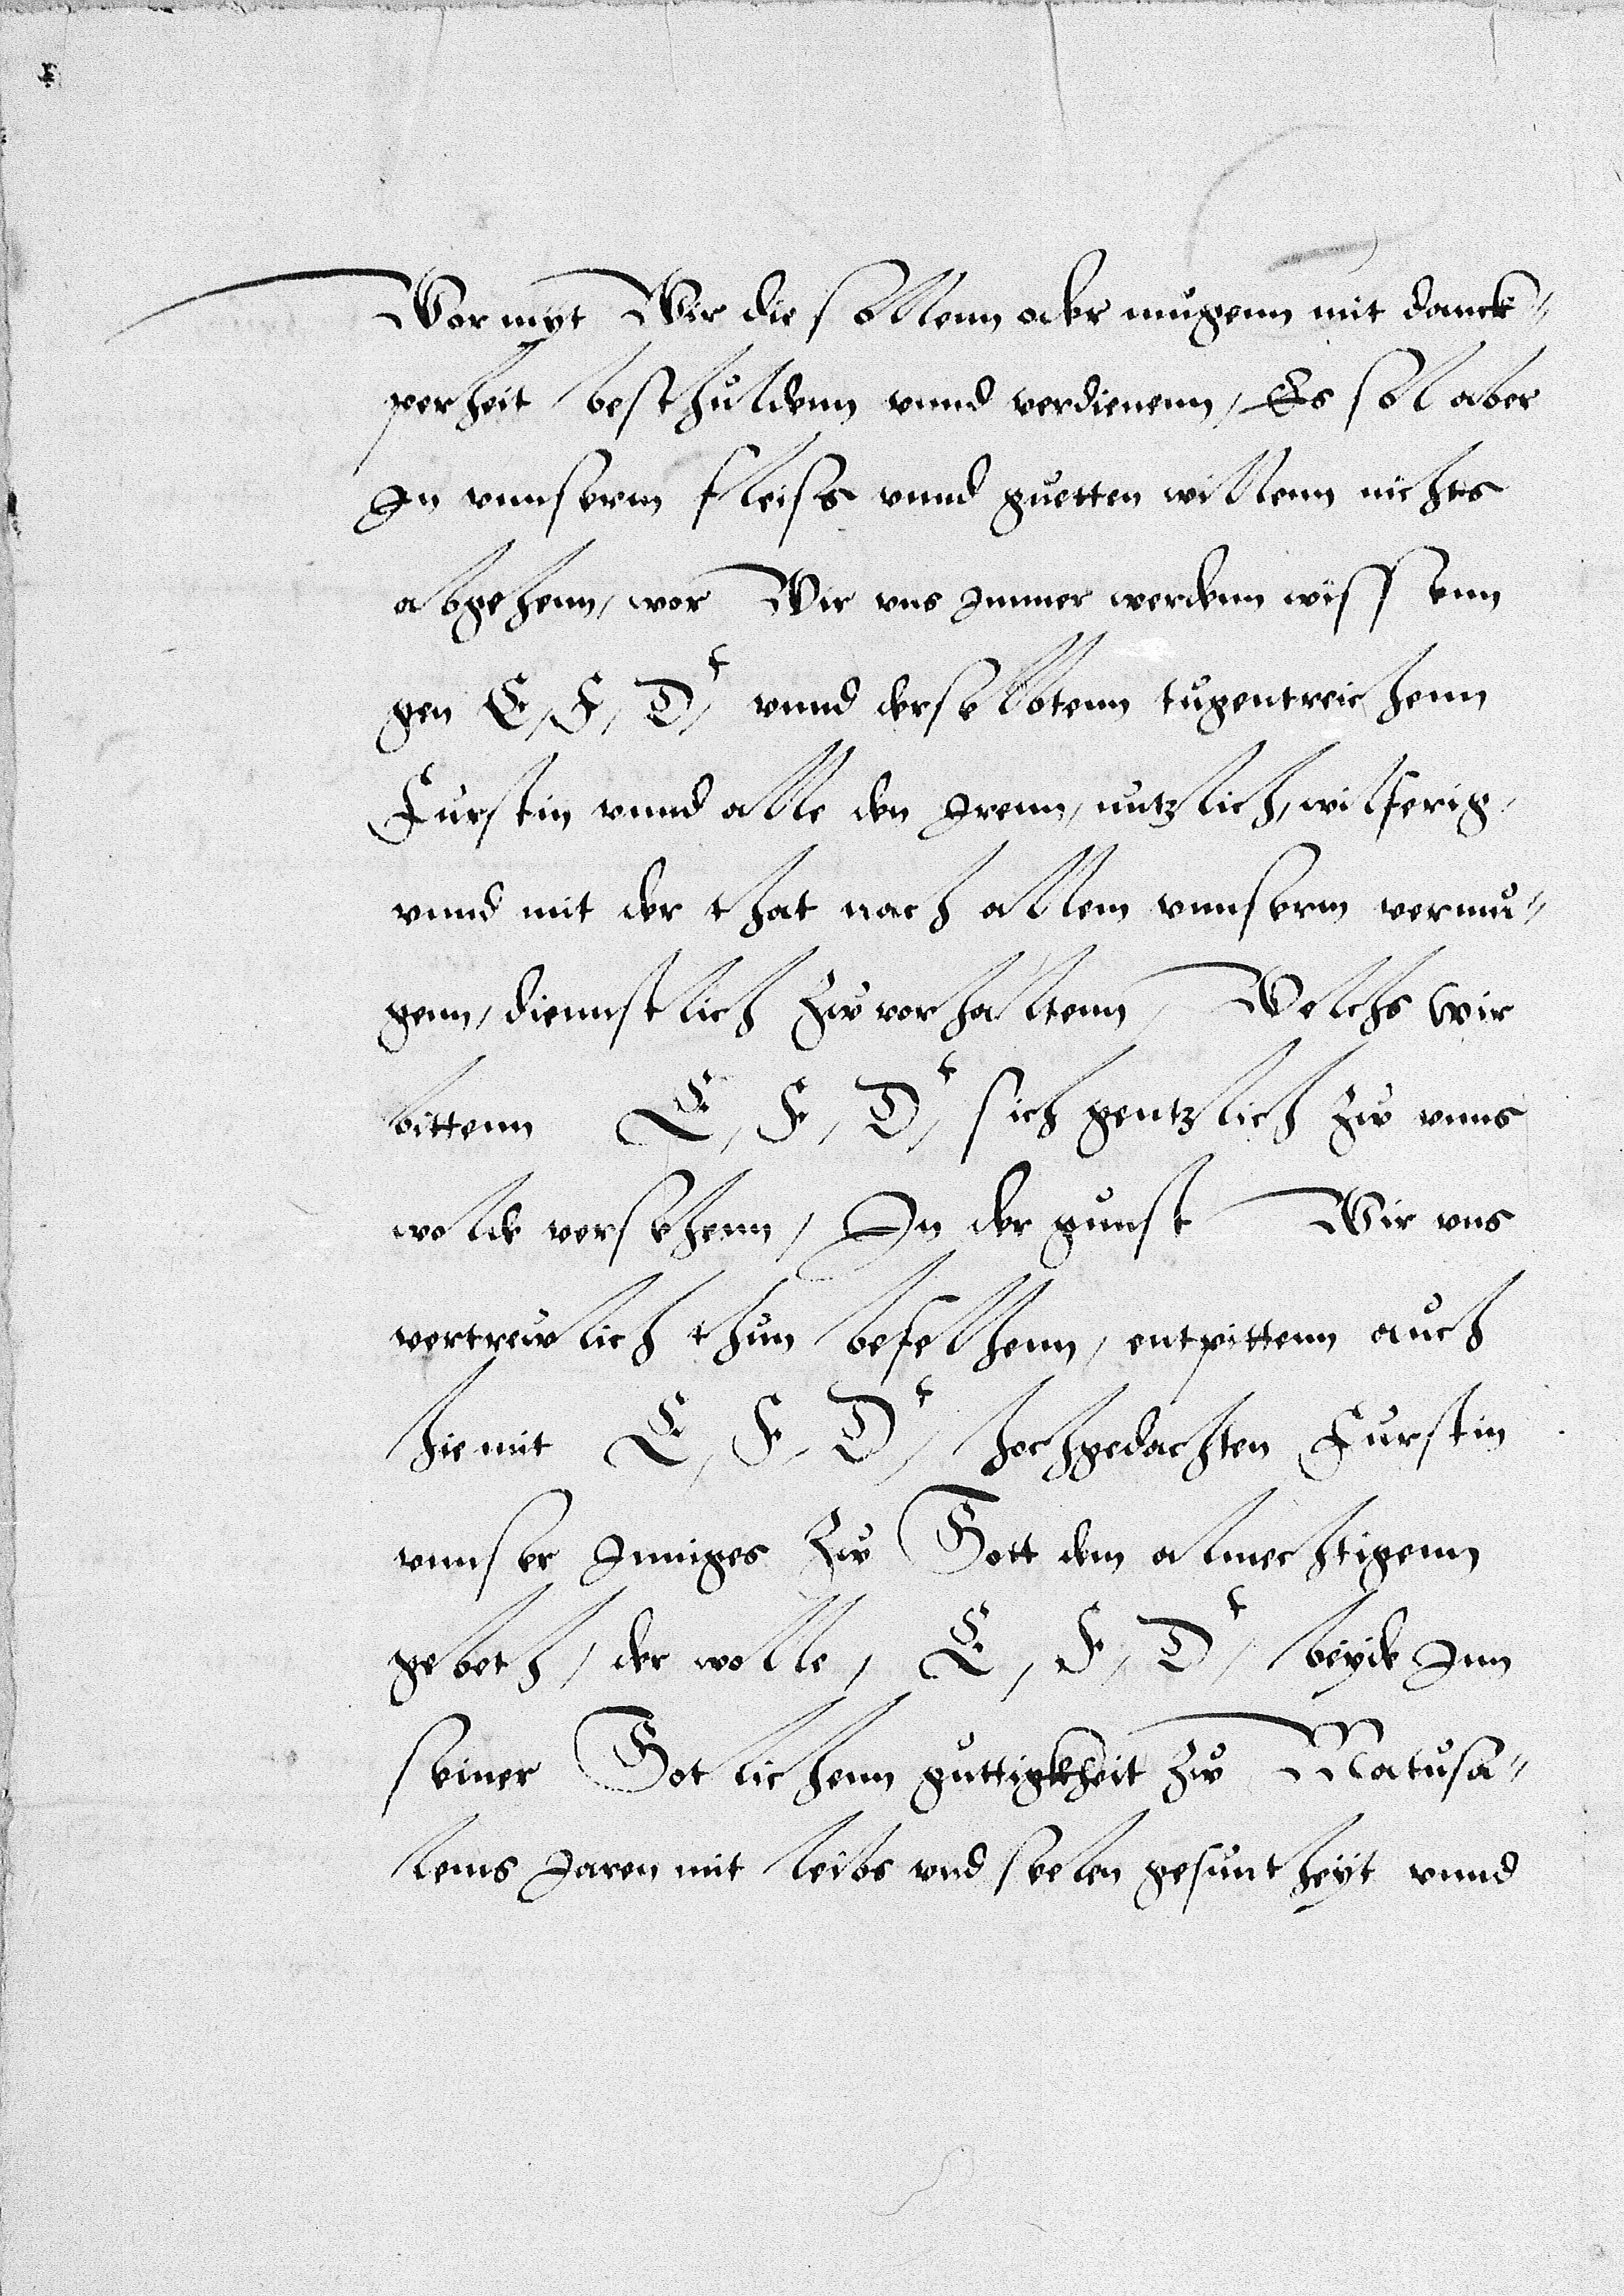 Wor myt Wir die sollenn oder mugenn mit danck„
perheit beschuldenn vnnd verdienenn, Es soll aber
In vnnserm fleiss vnnd guetten willenn nichts
abgehenn, wor Wir vns Immer werdenn wissenn
gen E, F, Dt, vnnd derselbtenn tugentreichenn
Furstin vnnd alle den Irenn, nutzlich, wilferig,
vnnd mit der that nach allem vnnserm vermu„
genn, diennstlich zw vorhaltenn, Welchs wir
bittenn E, F, Dt, sich gentzlich zw vnns
wolde versehenn, In der gunst Wir vns
vertrewlich thun befelhenn, entpittenn auch
hiemit E, F, Dt, hochgedachten Furstin
vnnser Inniges zw Gott dem almechtigenn
gebeth, der wolle, E, F, Dt, beyde Inn
seiner Gotlichenn guttigkheit zw Matusa„
lems Jaren mit leibs vnd seelen gesuntheyt vnnd